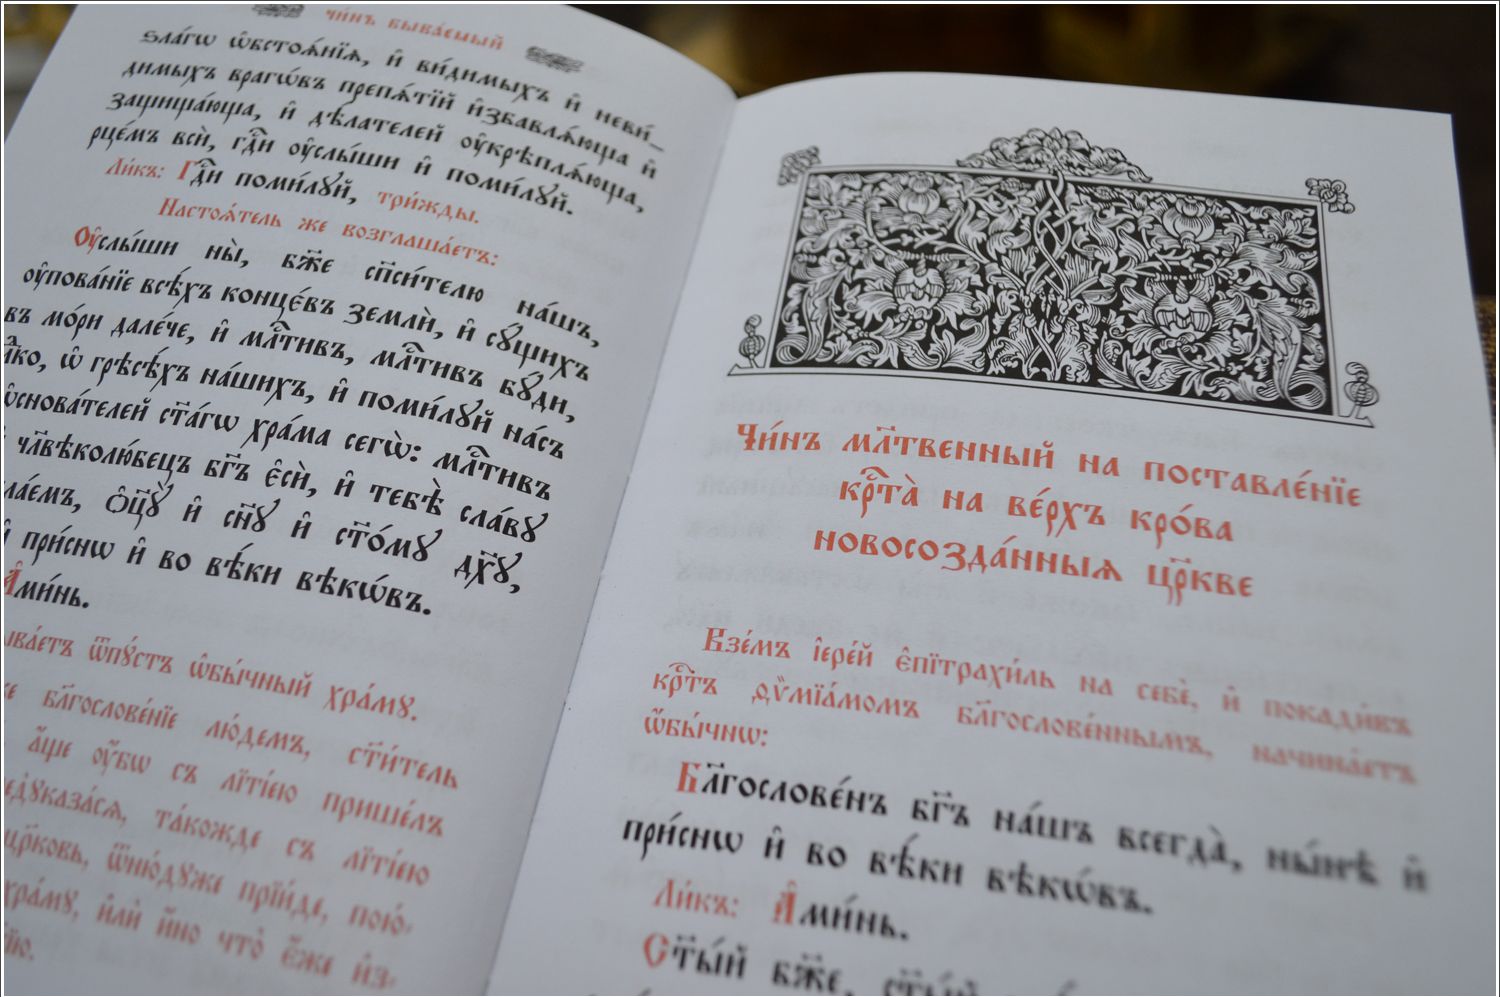 чи́нъ быва́емый
ѕла́гѡ ѡ҆бстоѧ́нїѧ, и҆ ви́димыхъ и҆ неви́_
димыхъ врагѡ́въ препѧ́тїй и҆збавлѧ́юща и҆
защища́юща, и҆ дѣ́лателей ᲂу҆крѣплѧ́юща,
рце́мъ всѝ, гдⷭ҇и ᲂу҆слы́ши и҆ поми́лꙋй.
Ли́къ: Гдⷭ҇и поми́лꙋй, три́жды.
Настоѧ́тель же возглаша́етъ:
Оу҆слы́ши ны̀, бж҃е сп҃си́телю на́шъ,
ᲂу҆пова́нїе всѣ́хъ конце́въ землѝ, и҆ сꙋ́щихъ
въ мо́ри дале́че, и҆ млⷭ҇тивъ, млⷭ҇тивъ бꙋ́ди,
ѡ҆ грѣсѣ́хъ на́шихъ, и҆ поми́лꙋй на́съ
ст҃а́гѡ хра́ма сегѡ̀: млⷭ҇тивъ
чл҃вѣколю́бецъ бг҃ъ є҆сѝ, и҆ тебѣ̀ сла́вꙋ
ѻ҆ц҃ꙋ̀ и҆ сн҃ꙋ и҆ ст҃о́мꙋ дх҃ꙋ,
при́снѡ и҆ во вѣ́ки вѣкѡ́въ.
А҆ми́нь.
ѿпꙋ́стъ ѡ҆бы́чный хра́мꙋ.
бл҃гослове́нїе лю́демъ, ст҃и́тель
а҆́ще ᲂу҆́бѡ съ лїті́ею прише́лъ
та́кожде съ лїті́ею
цр҃ковь, ѿню́дꙋже прїи́де, пою́-
хра́мꙋ, и҆лѝ и҆́но что̀ є҆́же и҆з-
Чи́нъ мл҃твенный на поставле́нїе
крⷭ҇та̀ на ве́рхъ кро́ва
новосозда́нныѧ цр҃кве
Взе́мъ і҆ере́й є҆пїтрахи́ль на себѐ, и҆ покади́въ
крⷭ҇тъ ѳѷмїа́момъ бл҃гослове́ннымъ, начина́етъ
ѡ҆бы́чнѡ:
Бл҃гослове́нъ бг҃ъ на́шъ всегда̀, ны́нѣ и҆
при́снѡ и҆ во вѣ́ки вѣкѡ́въ.
Ли́къ: А҆ми́нь.
Ст҃ы́й бж҃е, ст҃ы́й